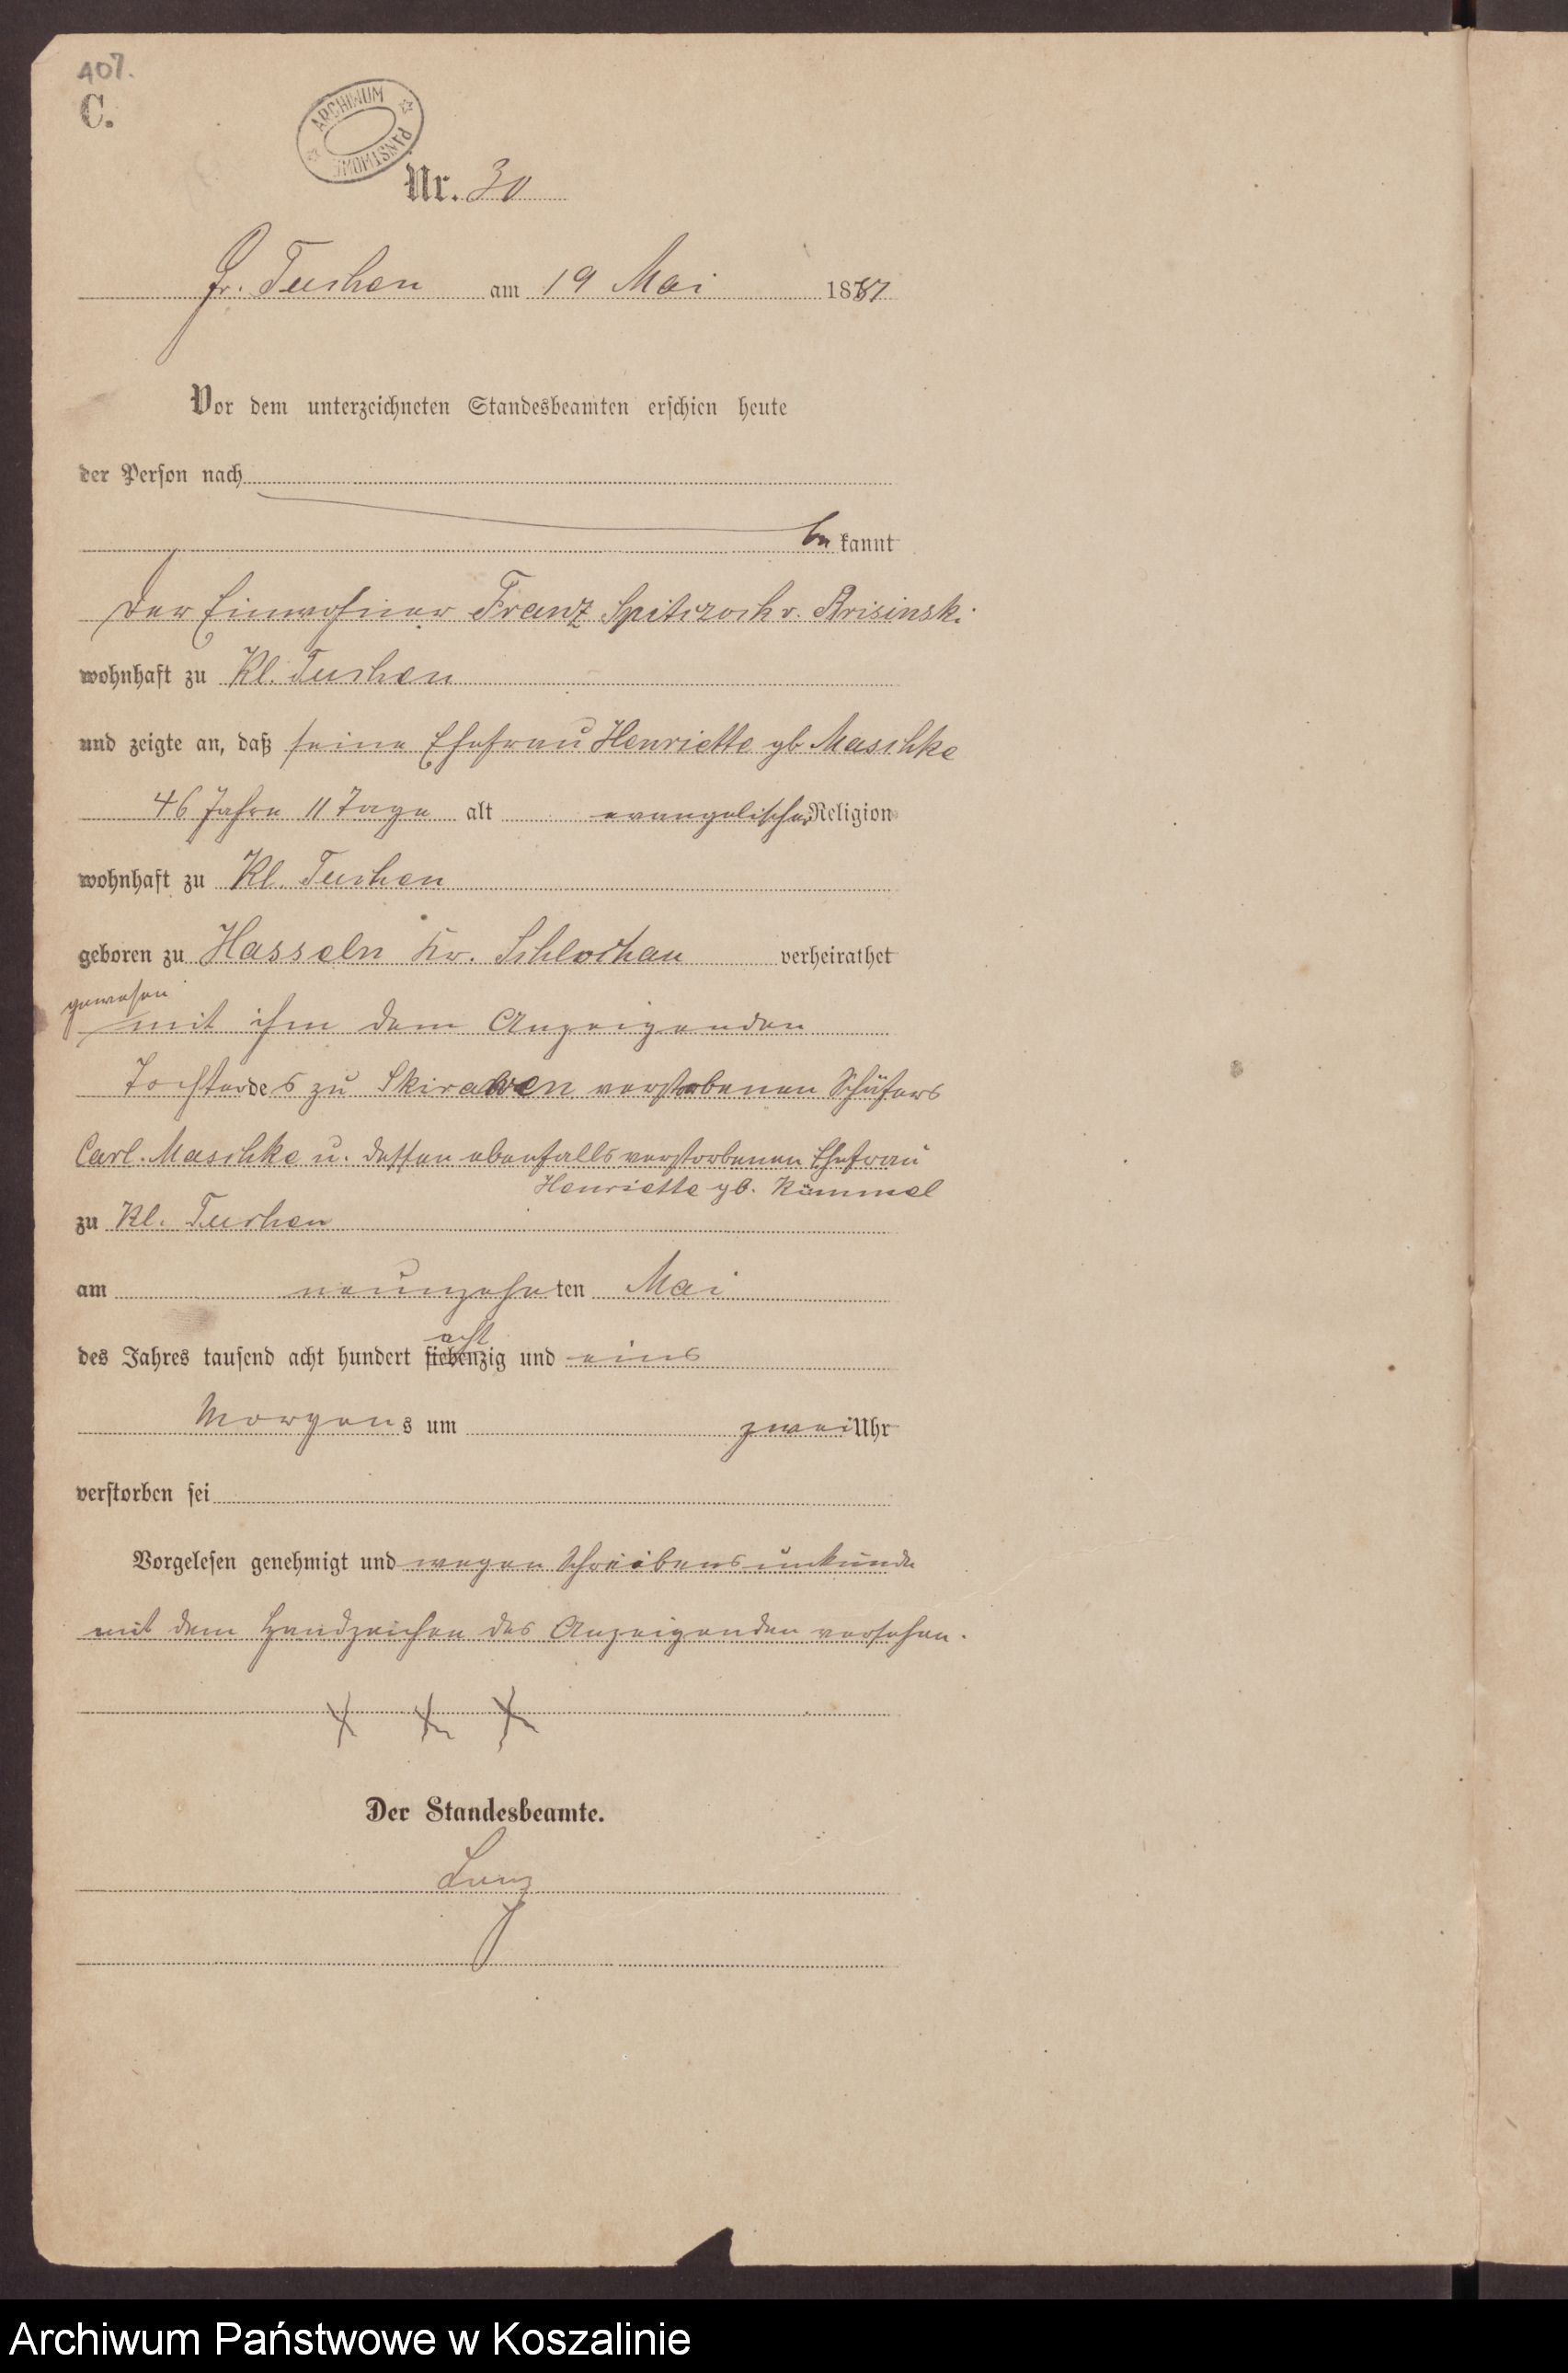 407.
C.
ARCHIWUM PAŃSTWOWE
Nr. 30
Gr. Tuchen am 19 Mai 1881
Vor dem unterzeichneten Standesbeamten erschien heute
der Person nach
bekannt
der Einwohner Franz Spitczock v. Brisinski
wohnhaft zu Kl. Tuchen
und zeigte an, daß seine Ehefrau Henriette gb Maschke
46 Jahre 11 Tage alt evangelischer Religion
wohnhaft zu Kl. Tuchen
geboren zu Hasseln Kr. Schlochau verheirathet
gewesen
mit ihm dem Anzeigenden
Tochter des zu verstorbenen Schäfers
Carl Maschke u. dessen ebenfalls verstorbenen Ehefrau
Henriette gb. Kümmel
zu Kl. Tuchen
am neunzehnten Mai
acht
des Jahres tausend acht hundert siebenzig und eins
Morgens um zwei Uhr
verstorben sei
Vorgelesen genehmigt und wegen Schreibensunkunde
mit dem Handzeichen des Anzeigenden versehen.
x x x
Der Standesbeamte.
Archiwum Państwowe w Koszalinie